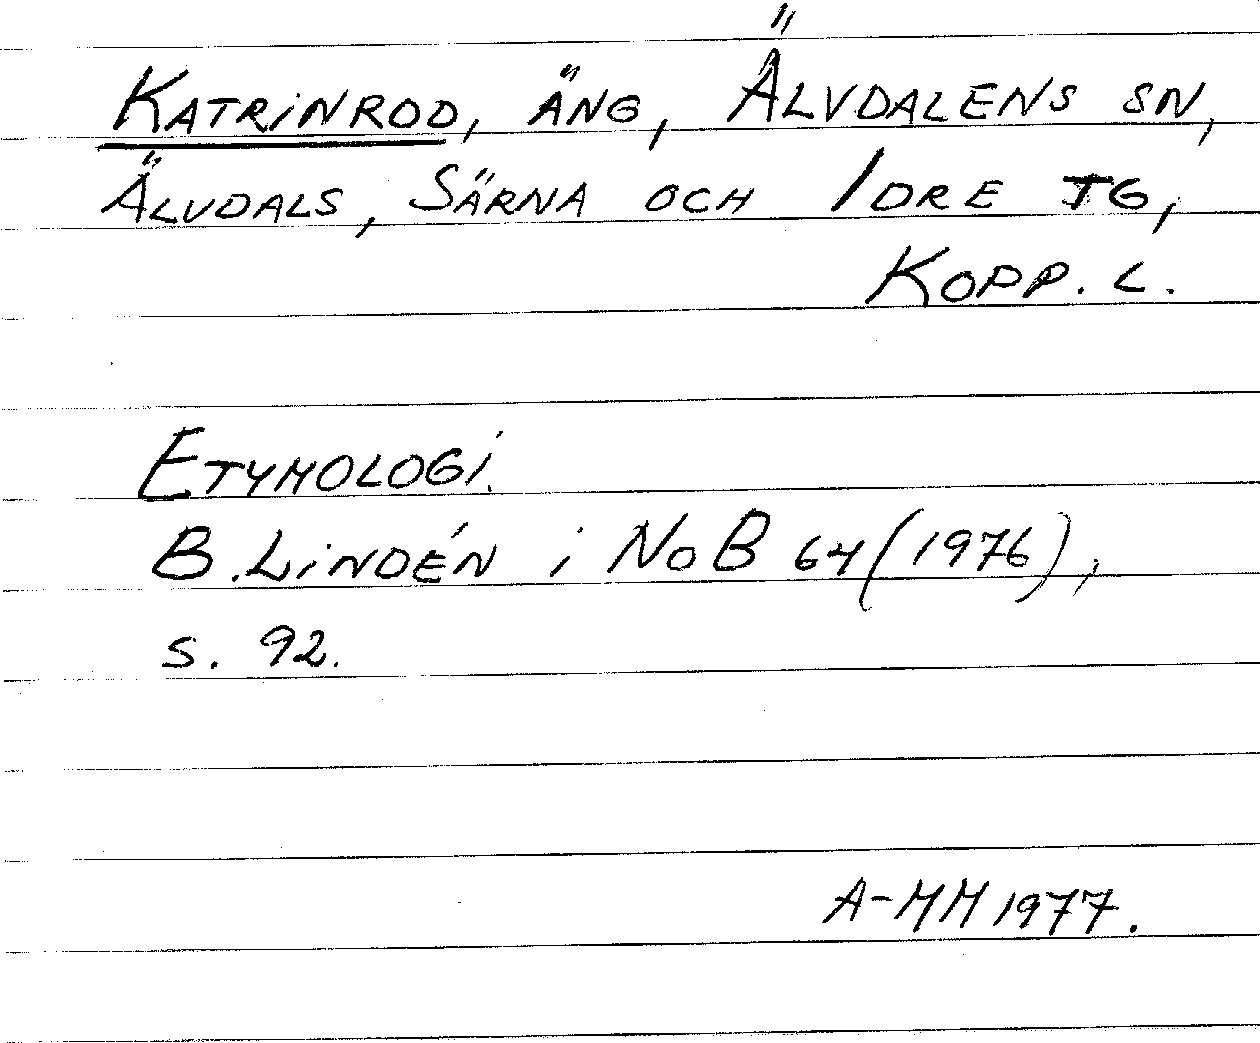 KATRINROD, ÄNG, ÄLVDALENS SN,
ÄLVDALS, SÄRNA OCH IDRE TG,
KOPP. L.
ETYMOLOGI.
B. LINDÉN i NoB 64 (1976),
S. 92.
A-MM 1977.